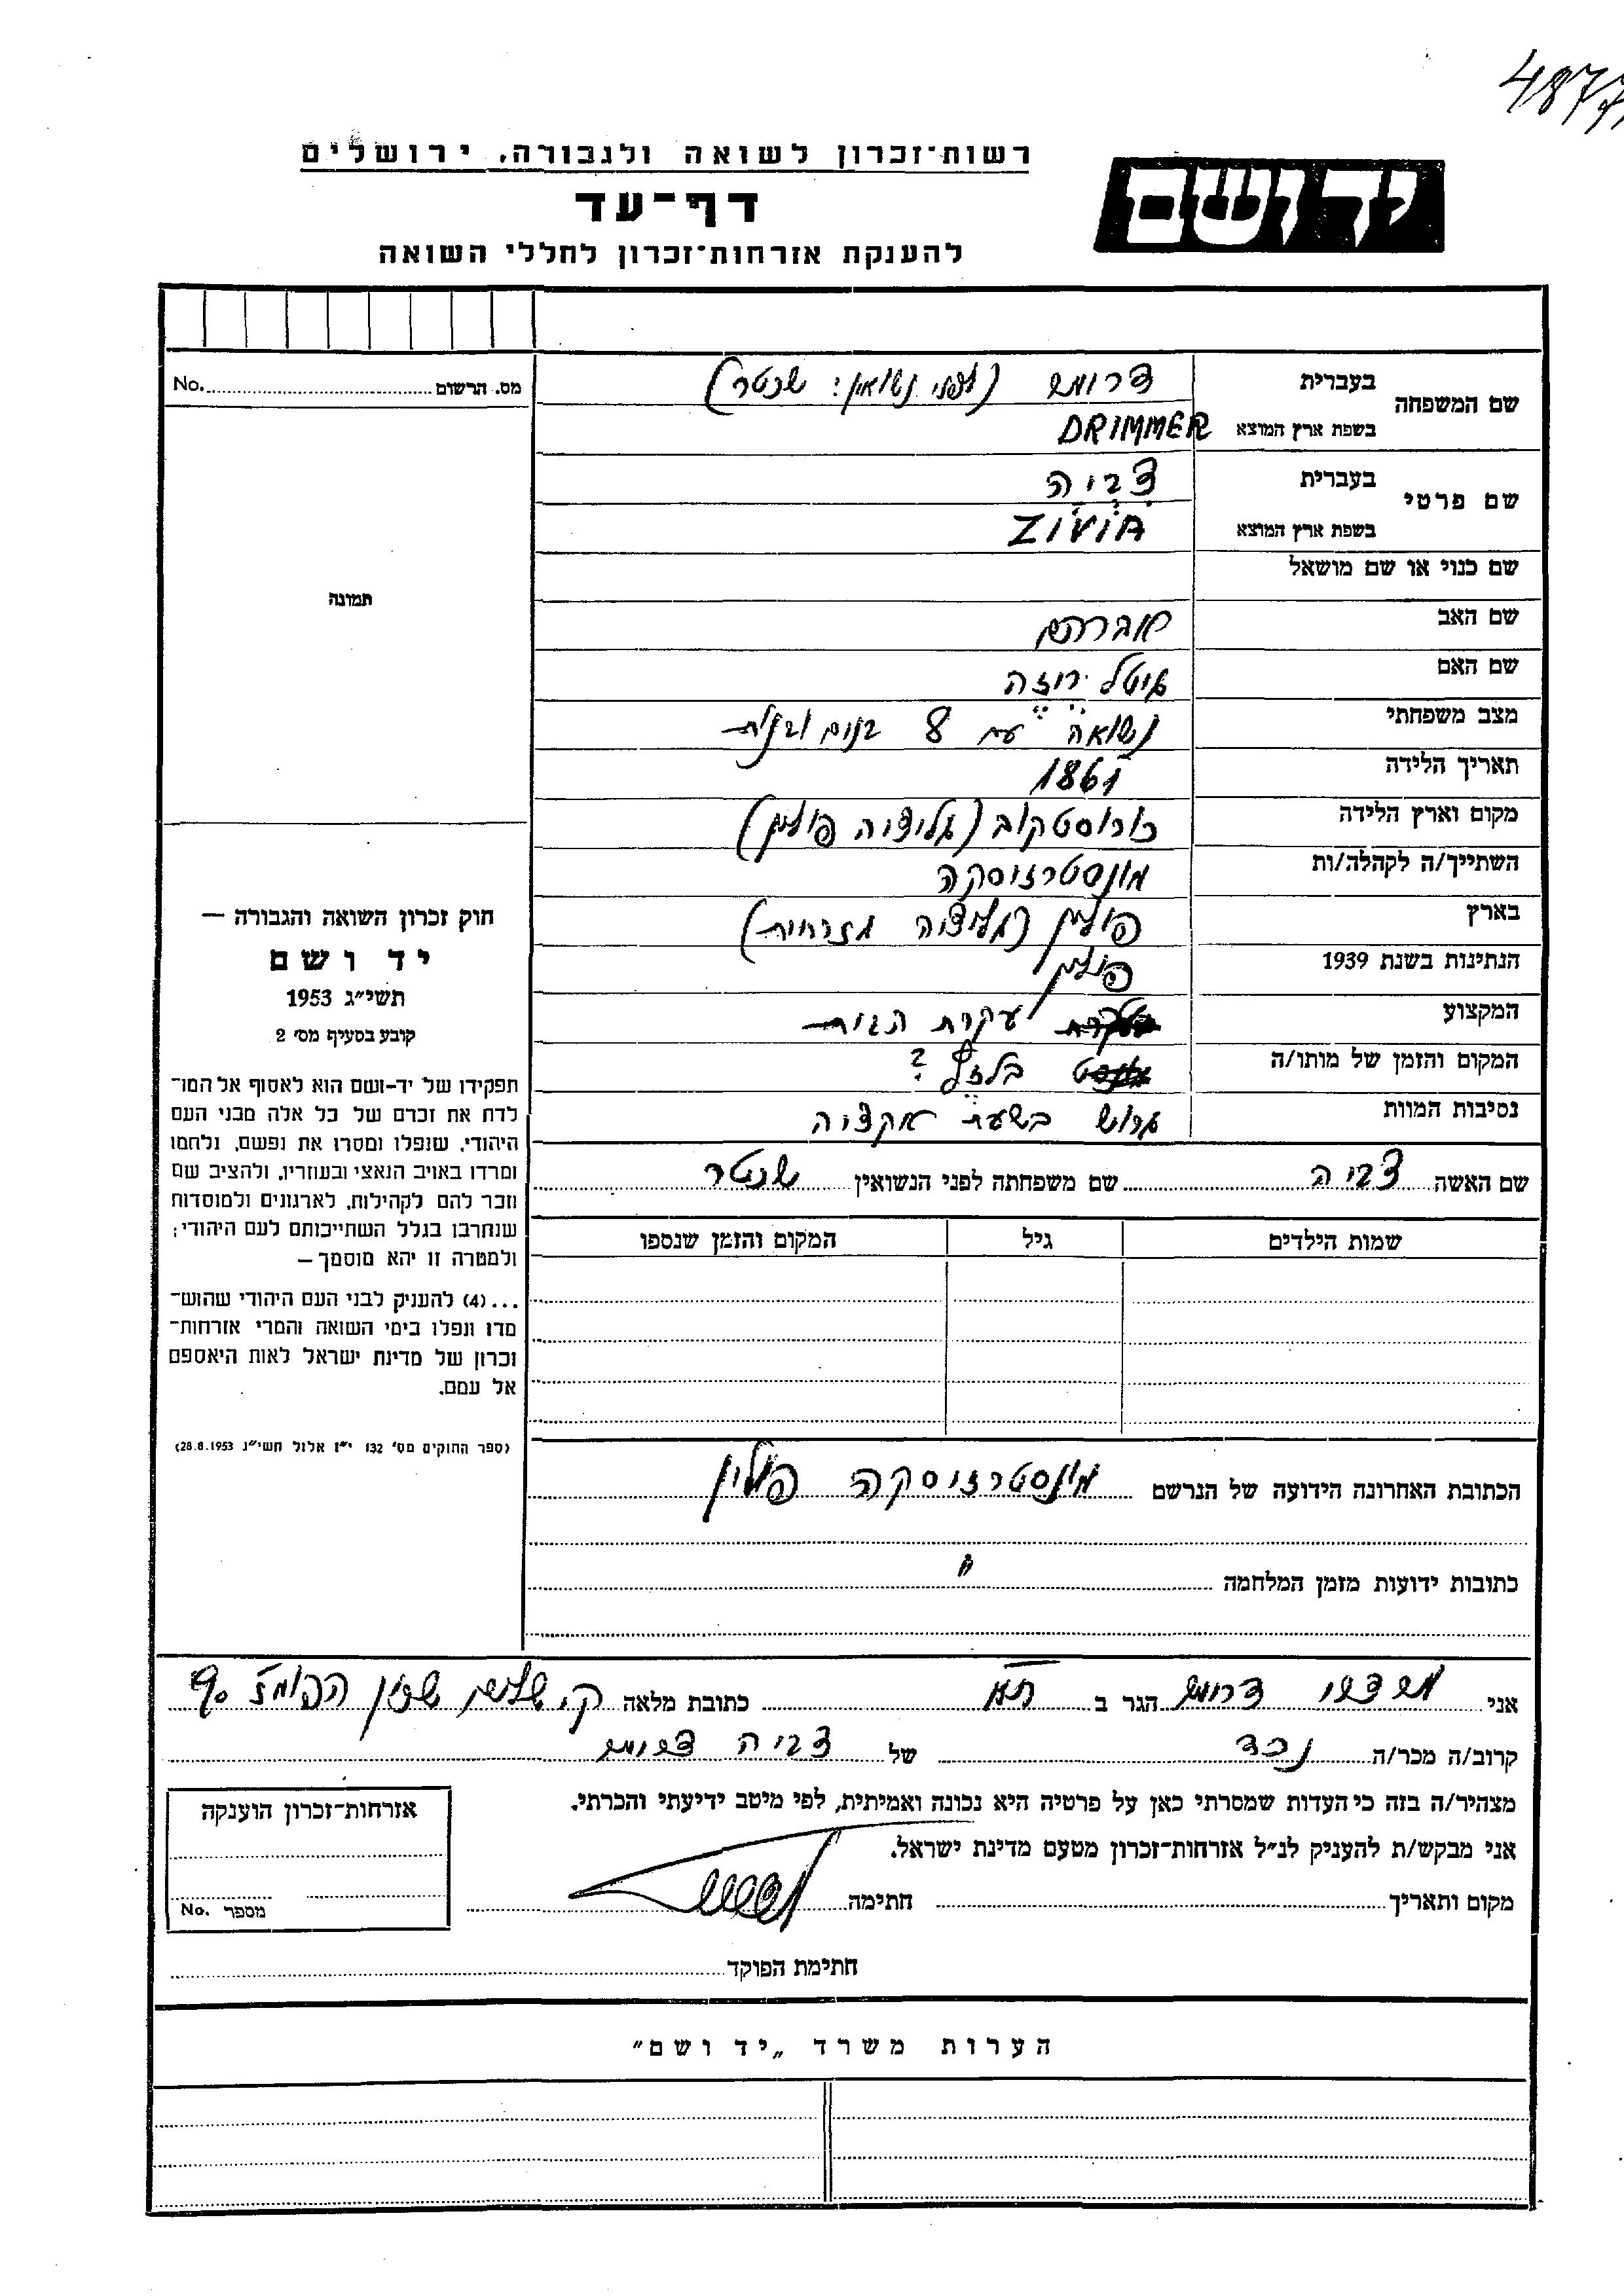 487
רשות־זכרון לשואה ולגבורה, ירושלים
יד ושם
דף־עד
להענקת אזרחות־זכרון לחללי השואה
מס. הרשום No.
שם המשפחה בעברית דרימר (לפני נשואין: שכטר)
בשפת ארץ המוצא DRIMMER
שם פרטי בעברית צביה
בשפת ארץ המוצא ZIVIA
שם כנוי או שם מושאל
תמונה
שם האב אברהם
שם האם איטל רוזה
מצב משפחתי נשואה עם 8 בנים ובנות
תאריך הלידה 1861
מקום וארץ הלידה (גליציה פולין)
השתייך/ה לקהלה/ות מונסטרזיסקה
בארץ פולין (גליציה מזרחית)
הנתינות בשנת 1939 פולין
המקצוע עקרת הבית
המקום והזמן של מותו/ה בלזץ ?
נסיבות המוות גרוש בשעת אקציה
שם האשה צביה שם משפחתה לפני הנשואין שכטר
שמות הילדים גיל המקום והזמן שנספו
חוק זכרון השואה והגבורה —
יד ושם
תשי״ג 1953
קובע בסעיף מס׳ 2
תפקידו של יד-ושם הוא לאסוף אל המו־
לדת את זכרם של כל אלה מבני העם
היהודי, שנפלו ומסרו את נפשם, נלחמו
ומרדו באויב הנאצי ובעוזריו, ולהציב שם
וזכר להם לקהילות, לארגונים ולמוסדות
שנחרבו בגלל השתייכותם לעם היהודי;
ולמטרה זו יהא מוסמך —
...(4) להעניק לבני העם היהודי שהוש־
מדו ונפלו בימי השואה והמרי אזרחות־
זכרון של מדינת ישראל לאות היאספם
אל עמם.
(ספר החוקים מס׳ 132 י״ז אלול תשי״ג 28.8.1953)
הכתובת האחרונה הידועה של הנרשם מונסטרזיסקה פולין
כתובות ידועות מזמן המלחמה "
אני דרימר הגר ב ת״א כתובת מלאה ק. שלום שכון 90
קרוב/ה מכר/ה נכד של צביה דרימר
מצהיר/ה בזה כי העדות שמסרתי כאן על פרטיה היא נכונה ואמיתית, לפי מיטב ידיעתי והכרתי.
אני מבקש/ת להעניק לנ״ל אזרחות־זכרון מטעם מדינת ישראל.
מקום ותאריך חתימה
אזרחות־זכרון הוענקה
מספר No.
חתימת הפוקד
הערות משרד „יד ושם"